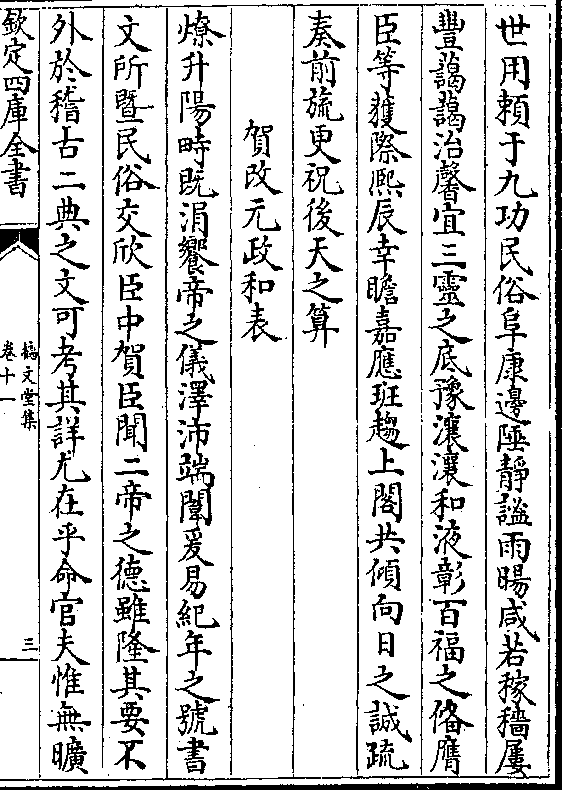 世用頼于九功民俗阜康邊陲靜謐雨暘咸若稼穡屢
豐藹藹治馨宜三靈之底豫瀼瀼和液彰百福之俻膺
臣等獲際熈辰幸瞻嘉應班趨上閣共傾向日之誠疏
奏前旒更祝後天之算
賀改元政和表
燎升陽畤既涓饗帝之儀澤沛端闈爰易紀年之號書
文所曁民俗交欣臣中賀臣聞二帝之德雖隆其要不
外於稽古二典之文可考其詳尤在乎命官夫惟無曠
欽定四庫全書
摛文堂集
卷十一
三